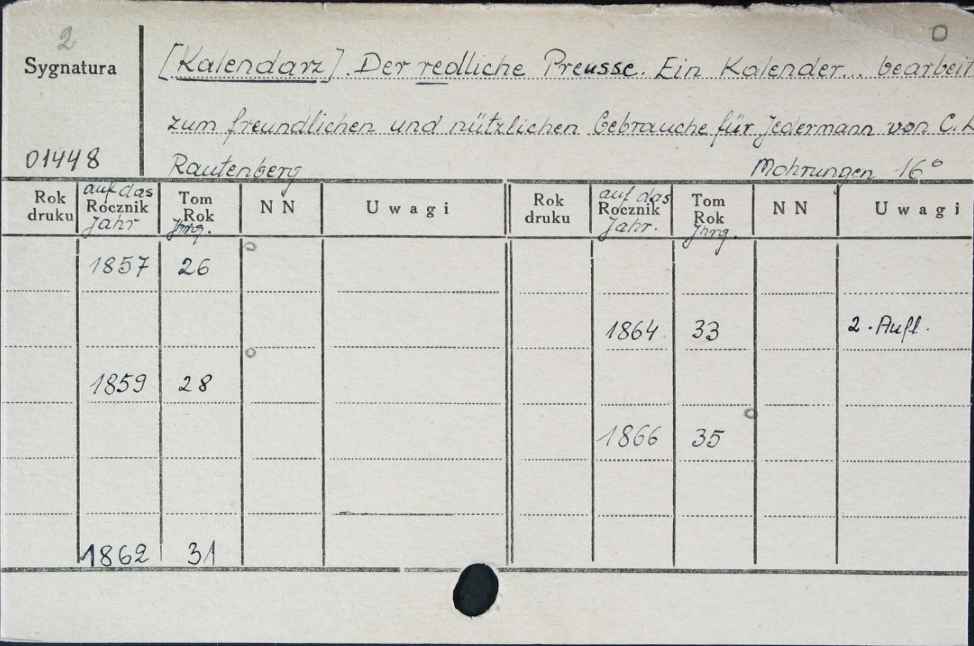 2
Sygnatura
[Kalendarz]. Der redliche Preusse. Ein Kalender... bearbeit
zum freundlichen und nützlichen Gebrauche für Jedermann von C. L
01448
Rautenberg Mohrungen 16°
Rok druku auf das Rocznik Jahr Tom Rok Jhrg. NN Uwagi Rok druku auf das Rocznik Jahr. Tom Rok Jhrg. NN Uwagi
1857 26
1864 33 2. Aufl.
1859 28
1866 35
1862 31